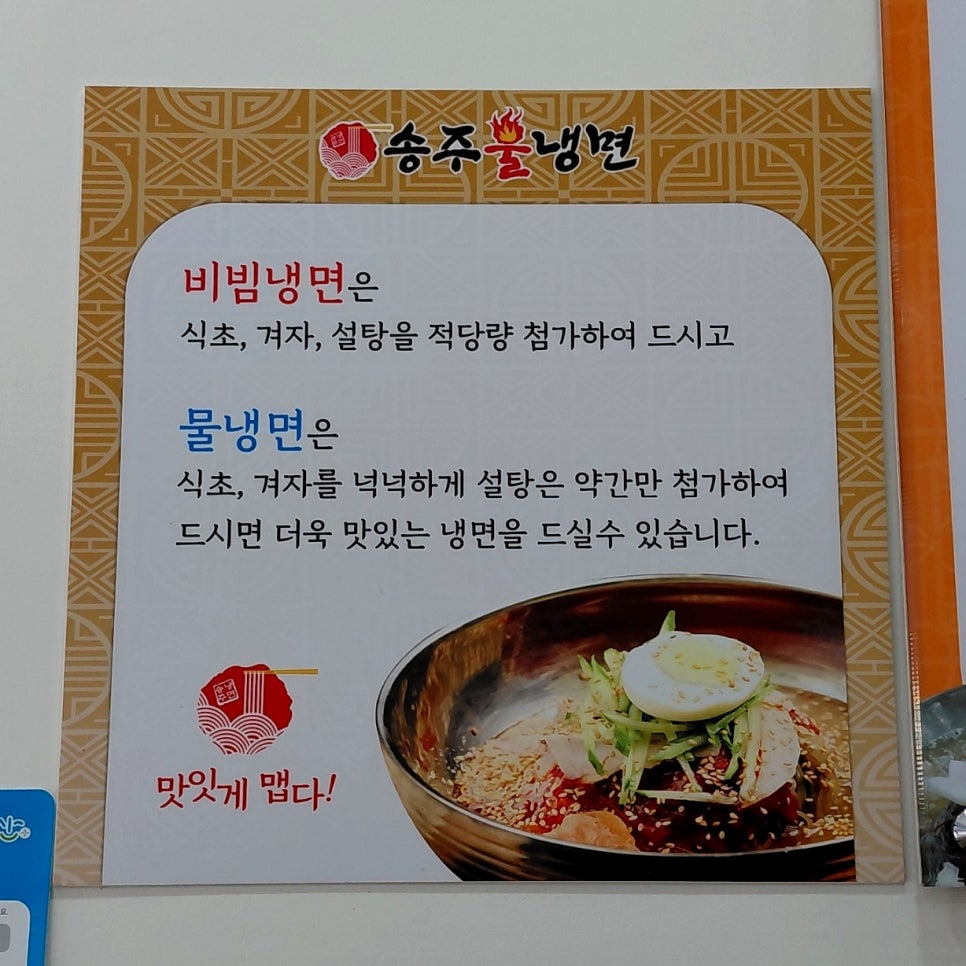 송주불냉면
비빔냉면은
식초, 겨자, 설탕을 적당량 첨가하여 드시고
물냉면은
식초, 겨자를 넉넉하게 설탕은 약간만 첨가하여
드시면 더욱 맛있는 냉면을 드실수 있습니다.
맛잇게 맵다!